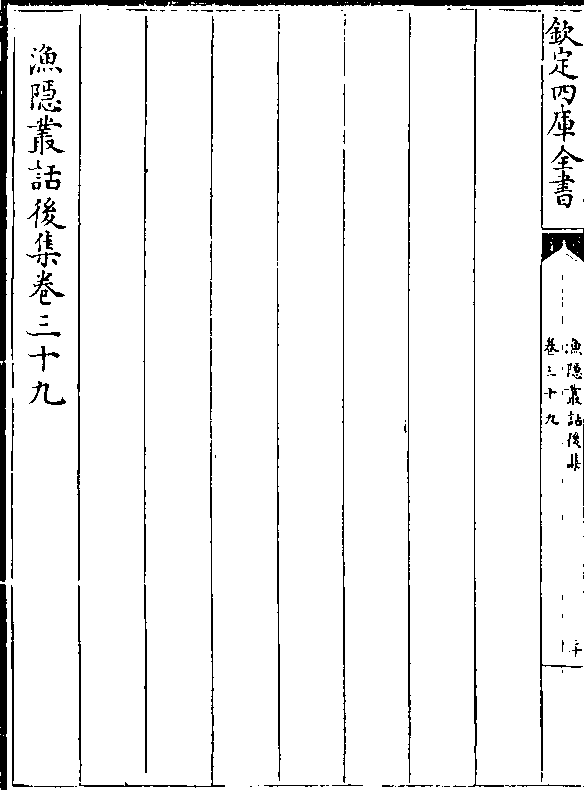 欽定四庫全書
漁隱叢話後集
卷三十九
漁隱叢話後集卷三十九